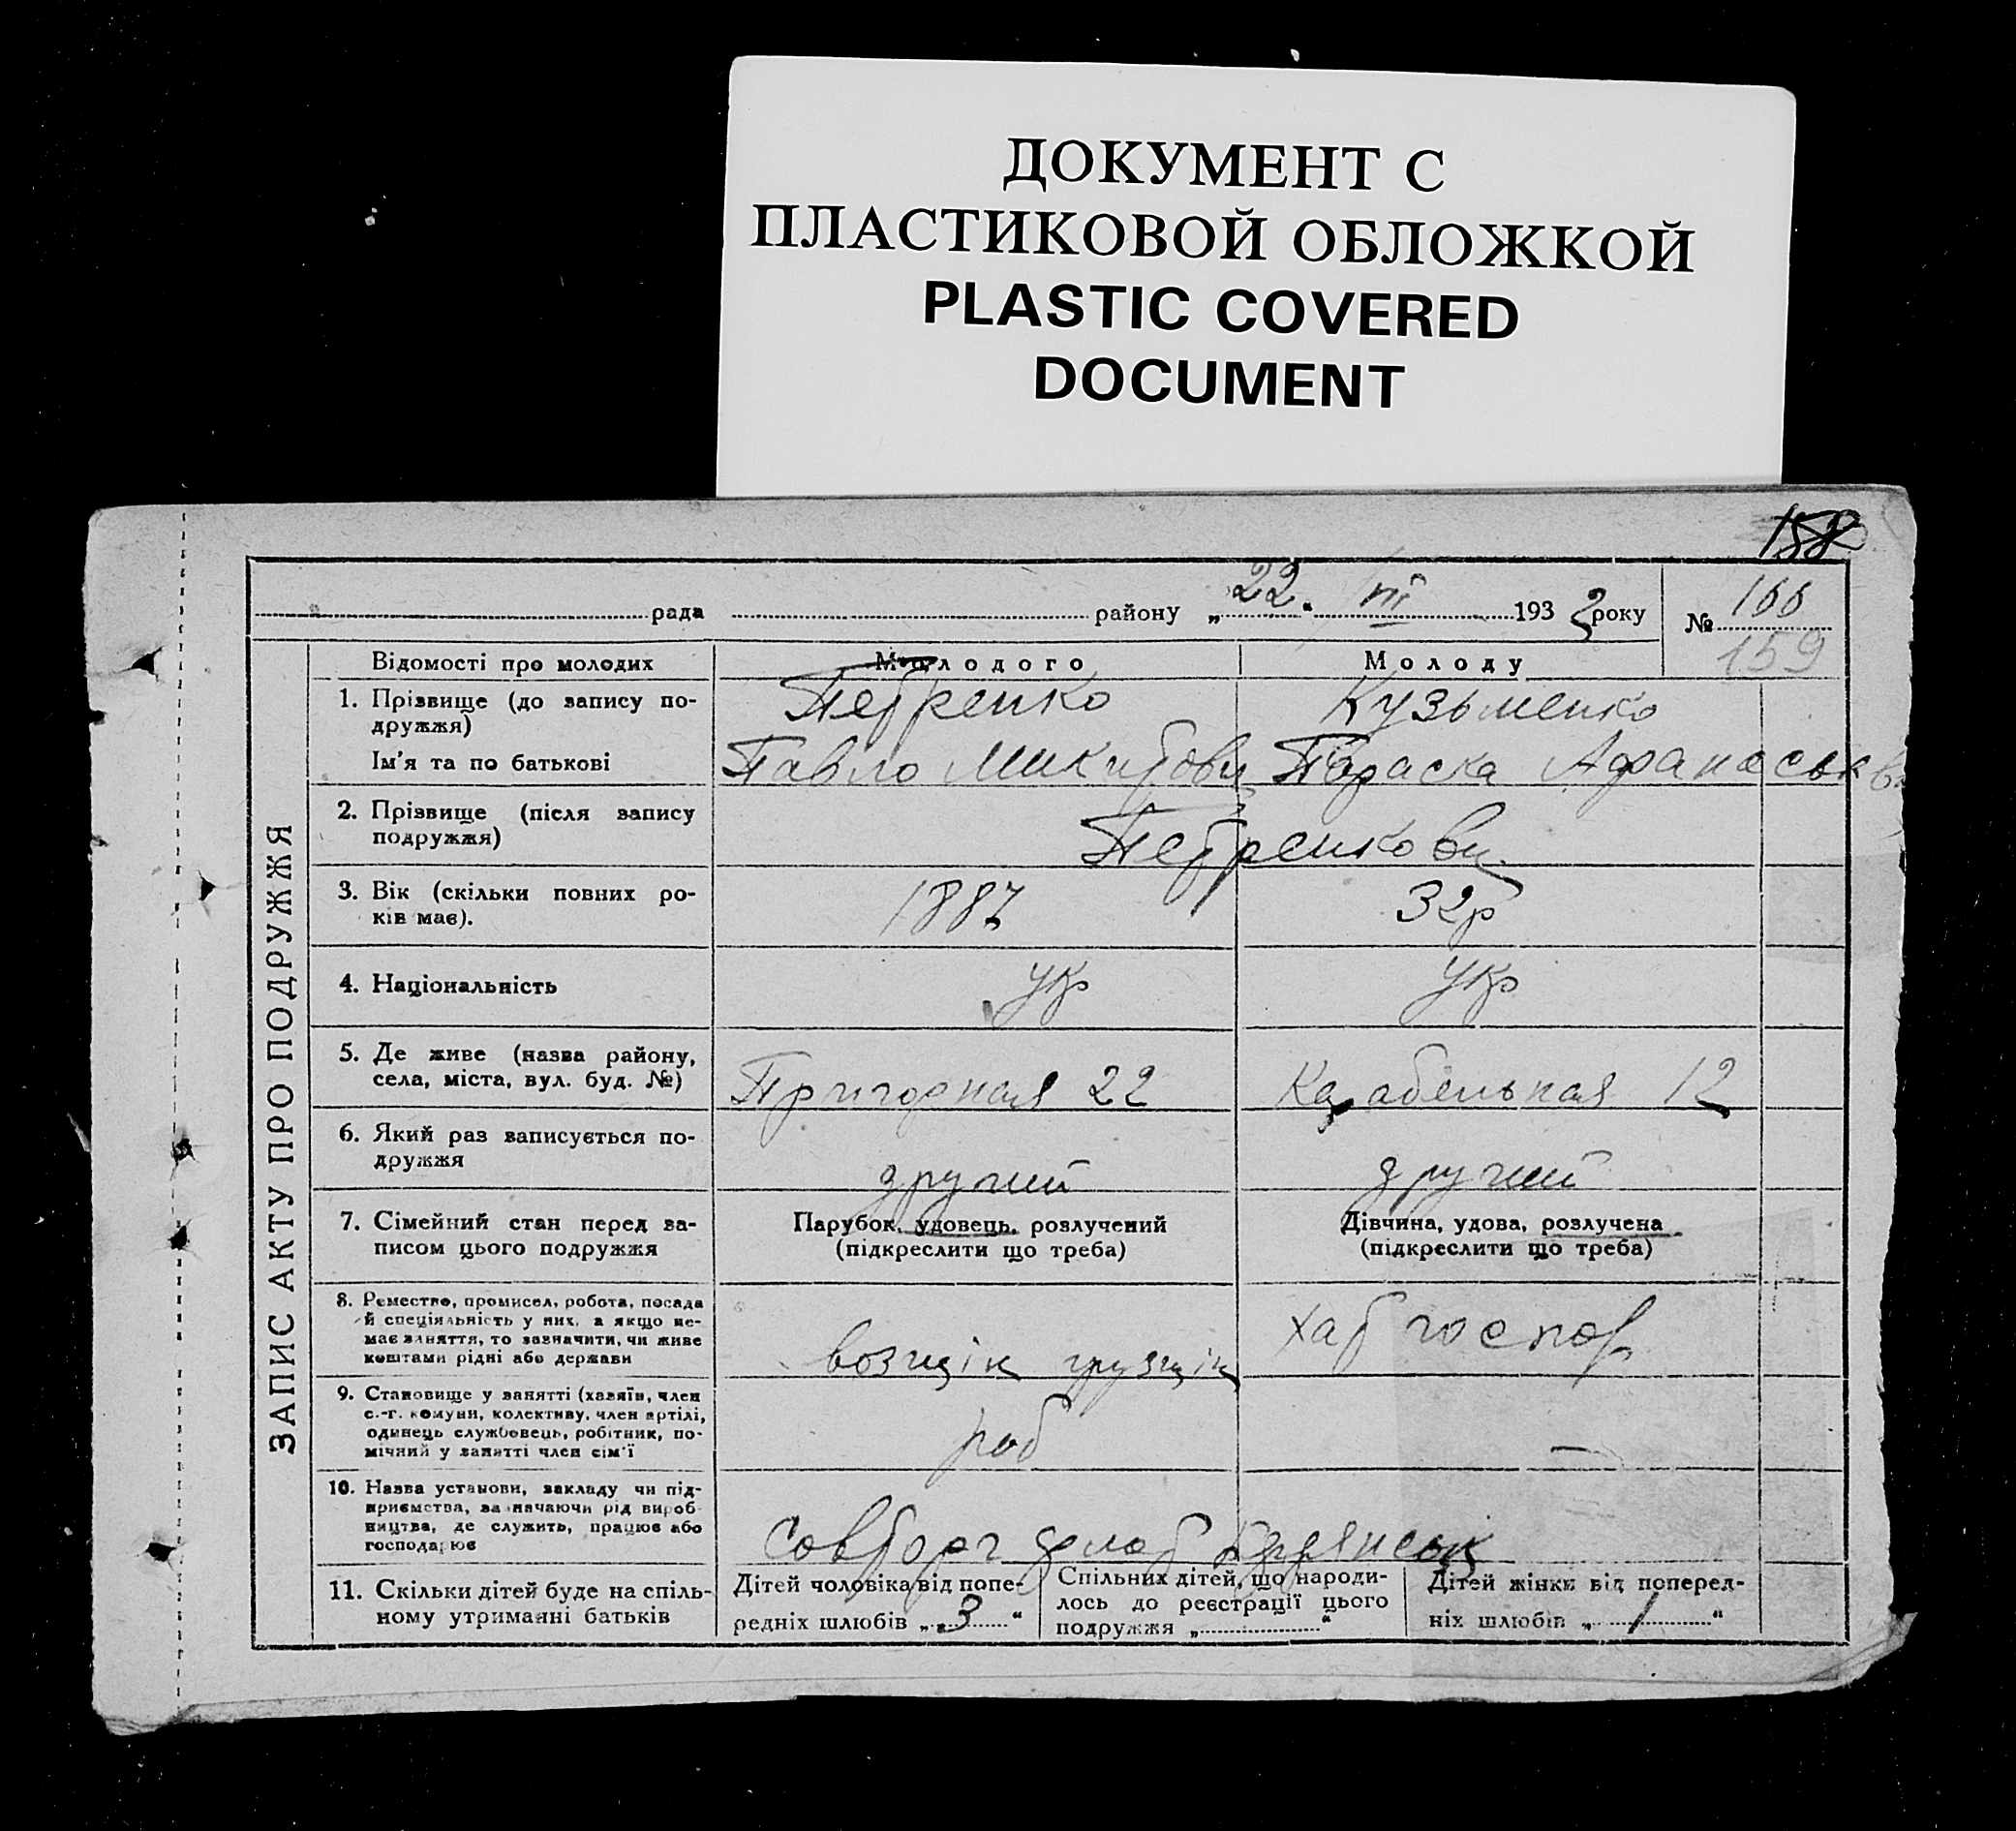 ДОКУМЕНТ С
ПЛАСТИКОВОЙ ОБЛОЖКОЙ
PLASTIC COVERED
DOCUMENT
158
рада району „22“ III 1932 року № 166
159
ЗАПИС АКТУ ПРО ПОДРУЖЖЯ
Відомості про молодих Молодого Молоду
1. Прізвище (до запису по-
дружжя) Петренко Кузьменко
Ім'я та по батькові Павло Микитови Параска Афанаськв
2. Прізвище (після запису
подружжя) Петренкови
3. Вік (скільки повних ро-
ків має). 1887 32р
4. Національність укр укр
5. Де живе (назва району,
села, міста, вул. буд. №) Пригорная 22 Карабельная 12
6. Який раз записується по-
дружжя другий другий
7. Сімейний стан перед за-
писом цього подружжя
Парубок, удовець, розлучений
(підкреслити що треба)
Дівчина, удова, розлучена
(підкреслити що треба)
8. Ремество, промисел, робота, посада
й спеціяльність у них, а якщо не-
має заняття, то зазначити, чи живе
коштами рідні або держави
возщік грузщік хат госпор
9. Становище у занятті (хазяїн, член
с.-г. комуни, колективу, член артілі,
одинець службовець, робітник, по-
мічний у занятті член сім'ї
роб —
10. Назва установи, закладу чи під-
приємства, зазначаючи рід вироб-
ництва, де служить, працює або
господарює
Совторг
11. Скільки дітей буде на спіль-
ному утриманні батьків
Дітей чоловіка від попе-
редніх шлюбів „3“
Спільних дітей, що народи-
лось до реєстрації цього
подружжя „ “
Дітей жінки від поперед-
ніх шлюбів „1“